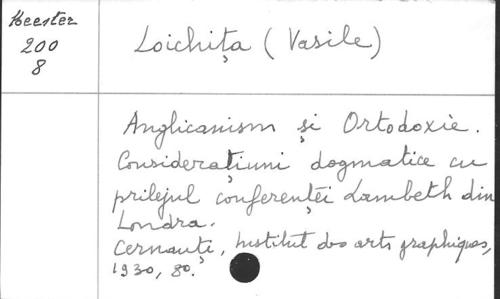 Heester
200
8
Loichița (Vasile)
Anglicanism și Ortodoxie.
Considerațiuni dogmatice cu
prilejul conferenței Lambeth din
Londra.
Cernauți, Institut des arts graphiques,
1930, 8o.